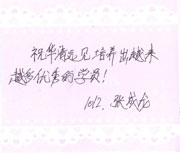 祝华清远见培养出越来
越多优秀的学员!
1012. 张成龙